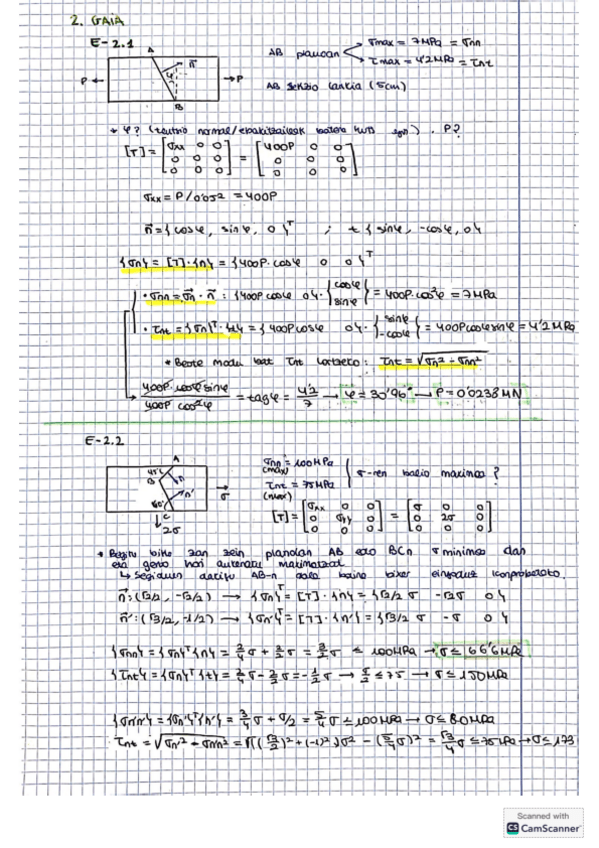 2. GAIA
E-2.1
A
n⃗
φ
P
P
B
AB planoan
σmax = 7MPa = σnn
τmax = 4'2MPa = τnt
AB sekzio karratua (5cm)
* φ? (tentsio normal/ebakitzaileak batera). P?
[T] = [σxx 0 0 / 0 0 0 / 0 0 0] = [400P 0 0 / 0 0 0 / 0 0 0]
σxx = P/0'05² = 400P
n⃗ = {cosφ, sinφ, 0}ᵀ ; t {sinφ, -cosφ, 0}
{σn} = [T]·{n} = {400P·cosφ 0 0}ᵀ
• σnn = σ⃗n · n⃗ : {400P cosφ 0}·{cosφ / sinφ} = 400P·cos²φ = 7MPa
• τnt = {σn}ᵀ·{t} = {400P cosφ 0}·{sinφ / -cosφ} = 400P cosφ sinφ = 4'2MPa
* Beste modu bat τnt lortzeko: τnt = √σn² - σnn²
400P·cosφ sinφ / 400P cos²φ = tagφ = 4'2/7 → φ = 30'96° → P = 0'0238 MN
E-2.2
A
45°
B
n
n'
60°
C
σ
2σ
σnn = 100MPa
(max)
τnt = 75MPa
(max)
σ-ren balio maximoa?
[T] = [σxx 0 0 / 0 σyy 0 / 0 0 0] = [σ 0 0 / 0 2σ 0 / 0 0 0]
* Begitu zein planotan AB edo BCn σ minimoa dan
eta gero hori
n⃗: (√2/2, -√2/2) → {σn}ᵀ = [T]·{n} = {√2/2 σ -√2σ 0}
n⃗': (√3/2, -1/2) → {σn'}ᵀ = [T]·{n'} = {√3/2 σ -σ 0}
{σnn} = {σn}ᵀ{n} = 2/4 σ + 2/2 σ = 3/2 σ ≤ 100MPa → σ ≤ 66'6MPa
{τnt} = {σn}ᵀ{t} = 2/4 σ - 2/2 σ = -1/2 σ → σ/2 ≤ 75 → σ ≤ 150MPa
{σn'n'} = {σn'}ᵀ{n'} = 3/4 σ + σ/2 = 5/4 σ ≤ 100MPa → σ ≤ 80MPa
τnt = √σn'² - σnn'² = √((√3/2)² + (-1)²)σ² - (5/4 σ)² = √3/4 σ ≤ 75MPa → σ ≤ 173
Scanned with
CS CamScanner